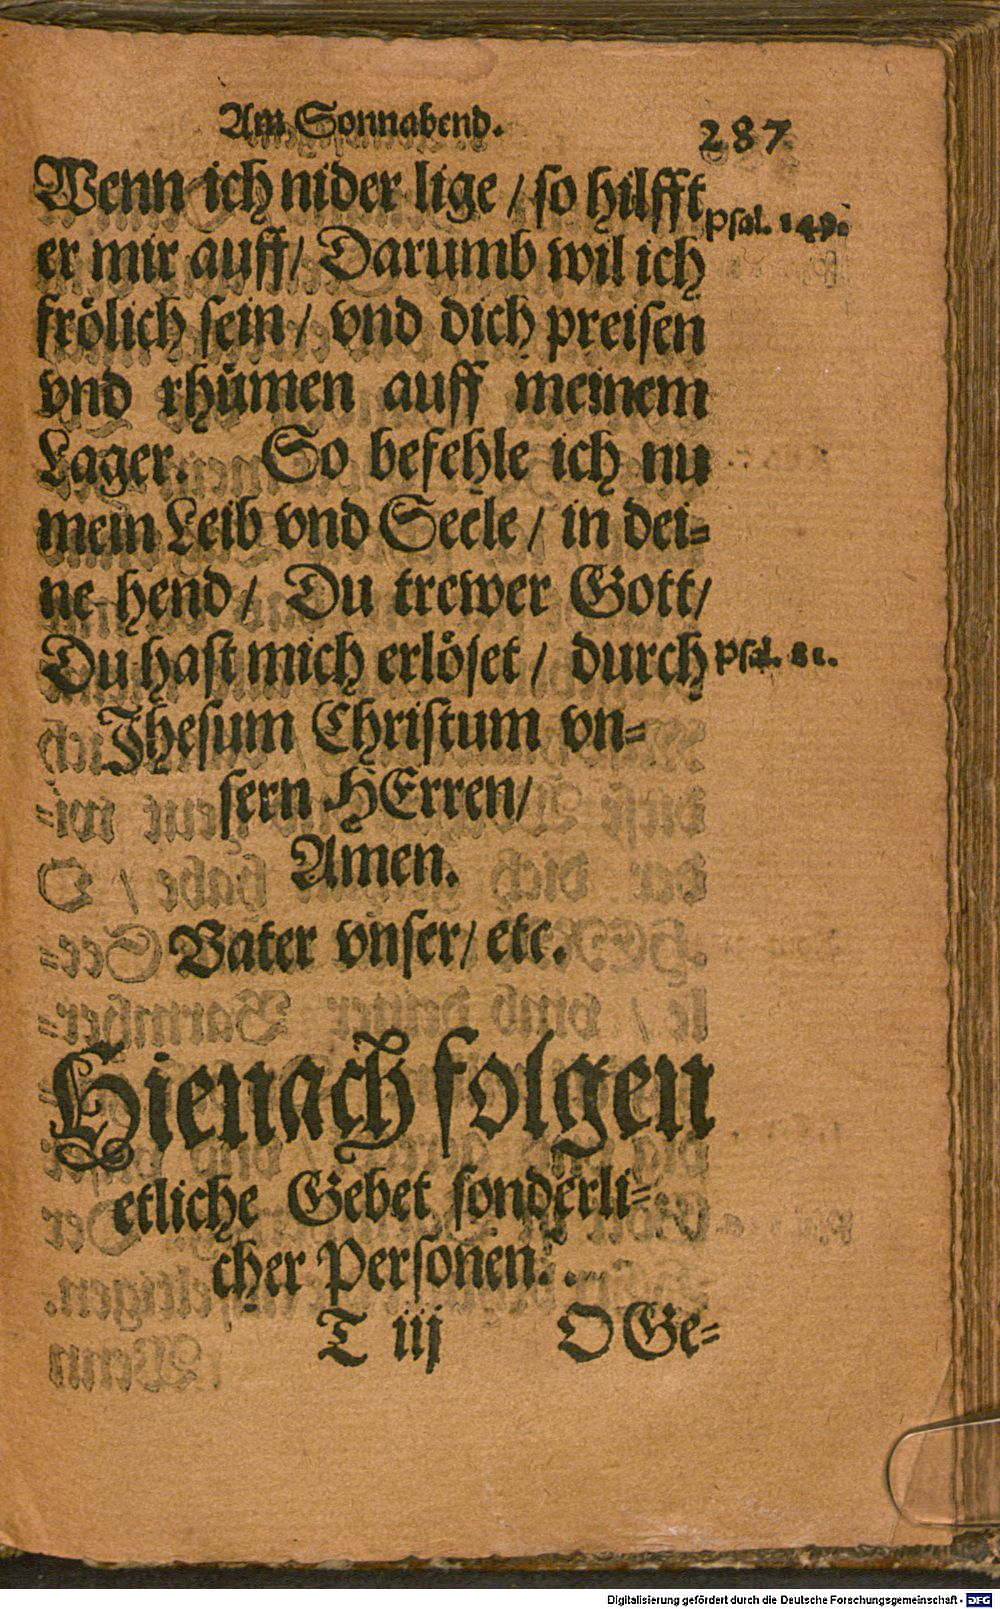 Am Sonnabend. 287
Wenn ich nider lige / so hilfft
Psal. 149.
er mir auff / Darumb wil ich
frölich sein / vnd dich preisen
vnd rhümen auff meinem
Lager. So befehle ich nu
mein Leib vnd Seele / in dei=
ne hend / Du trewer Gott /
Du hast mich erlöset / durch
Psal. 81.
Jhesum Christum vn=
sern HErren /
Amen.
Vater vnser / etc.
Hienach folgen
etliche Gebet sonderli=
cher Personen.
T iij O Ge=
Digitalisierung gefördert durch die Deutsche Forschungsgemeinschaft - DFG